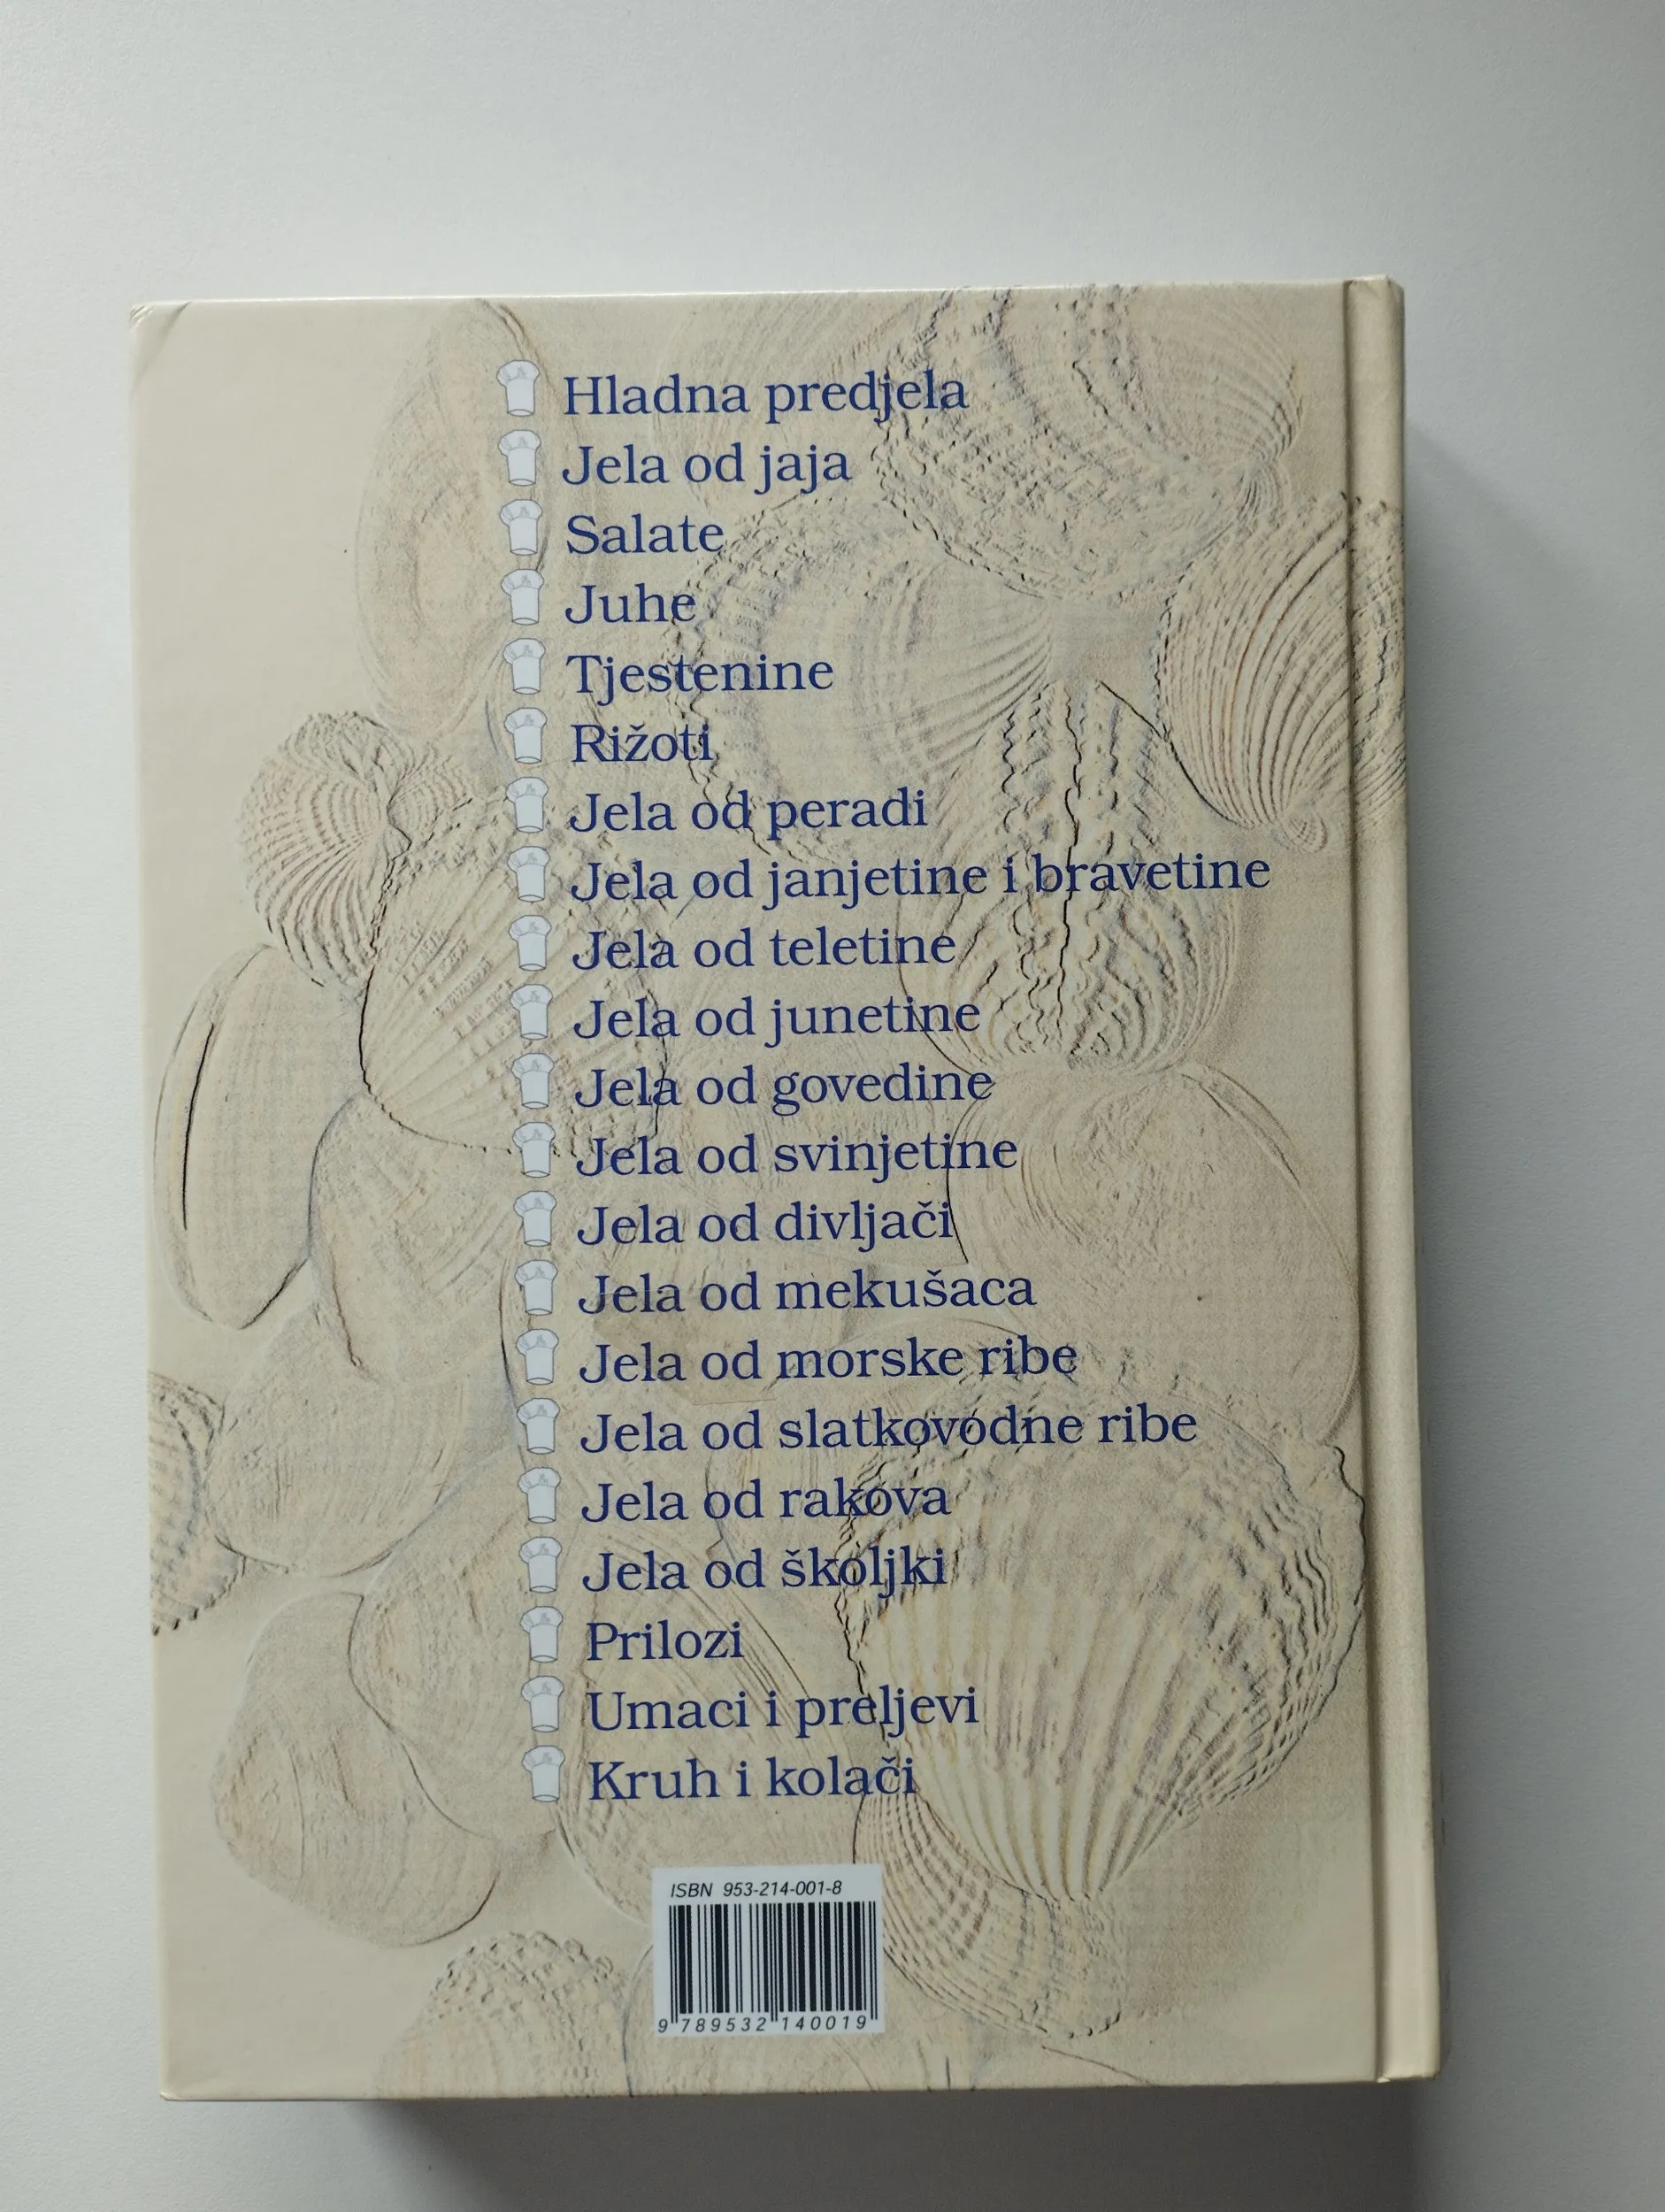 Hladna predjela
Jela od jaja
Salate
Juhe
Tjestenine
Rižoti
Jela od peradi
Jela od janjetine i bravetine
Jela od teletine
Jela od junetine
Jela od govedine
Jela od svinjetine
Jela od divljači
Jela od mekušaca
Jela od morske ribe
Jela od slatkovodne ribe
Jela od rakova
Jela od školjki
Prilozi
Umaci i preljevi
Kruh i kolači
ISBN 953-214-001-8
9 789532 140019